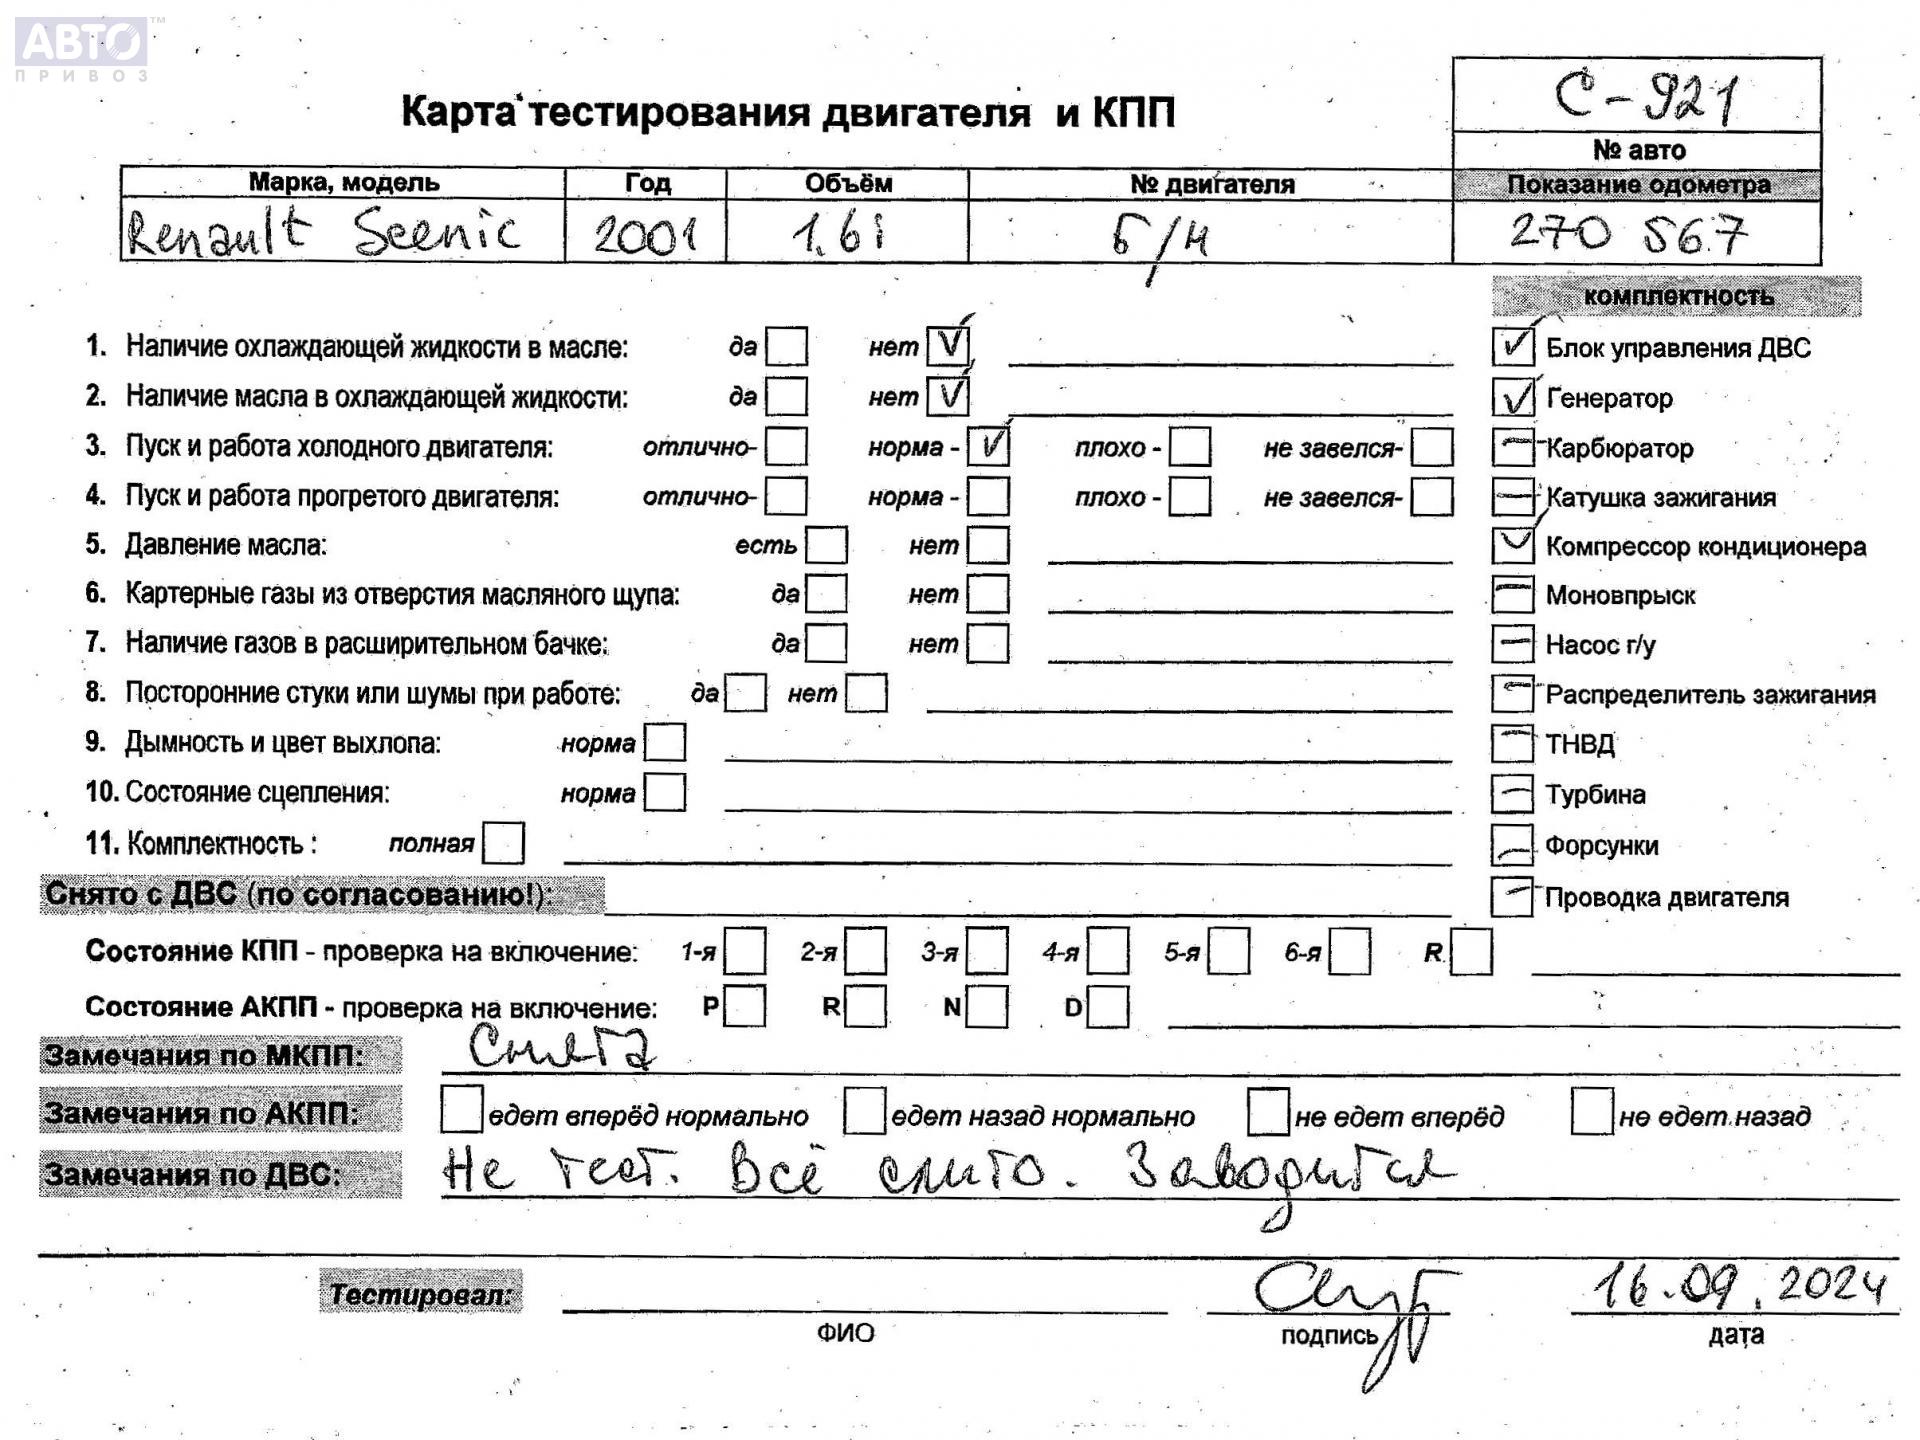 АВТО™
ПРИВОЗ
С-921
Карта тестирования двигателя и КПП
№ авто
Марка, модель Год Объём № двигателя Показание одометра
Renault Scenic 2001 1.6i Б/Н 270 567
комплектность
1. Наличие охлаждающей жидкости в масле: да нет V Блок управления ДВС
2. Наличие масла в охлаждающей жидкости: да нет V Генератор
3. Пуск и работа холодного двигателя: отлично- норма - V плохо - не завелся- Карбюратор
4. Пуск и работа прогретого двигателя: отлично- норма - плохо - не завелся- Катушка зажигания
5. Давление масла: есть нет Компрессор кондиционера
6. Картерные газы из отверстия масляного щупа: да нет Моновпрыск
7. Наличие газов в расширительном бачке: да нет Насос г/у
8. Посторонние стуки или шумы при работе: да нет Распределитель зажигания
9. Дымность и цвет выхлопа: норма ТНВД
10. Состояние сцепления: норма Турбина
11. Комплектность : полная Форсунки
Снято с ДВС (по согласованию!): Проводка двигателя
Состояние КПП - проверка на включение: 1-я 2-я 3-я 4-я 5-я 6-я R
Состояние АКПП - проверка на включение: P R N D
Замечания по МКПП: Снята
Замечания по АКПП: едет вперёд нормально едет назад нормально не едет вперёд не едет назад
Замечания по ДВС: Не тест. Всё слито. Заводится
Тестировал: 16.09.2024
ФИО подпись дата